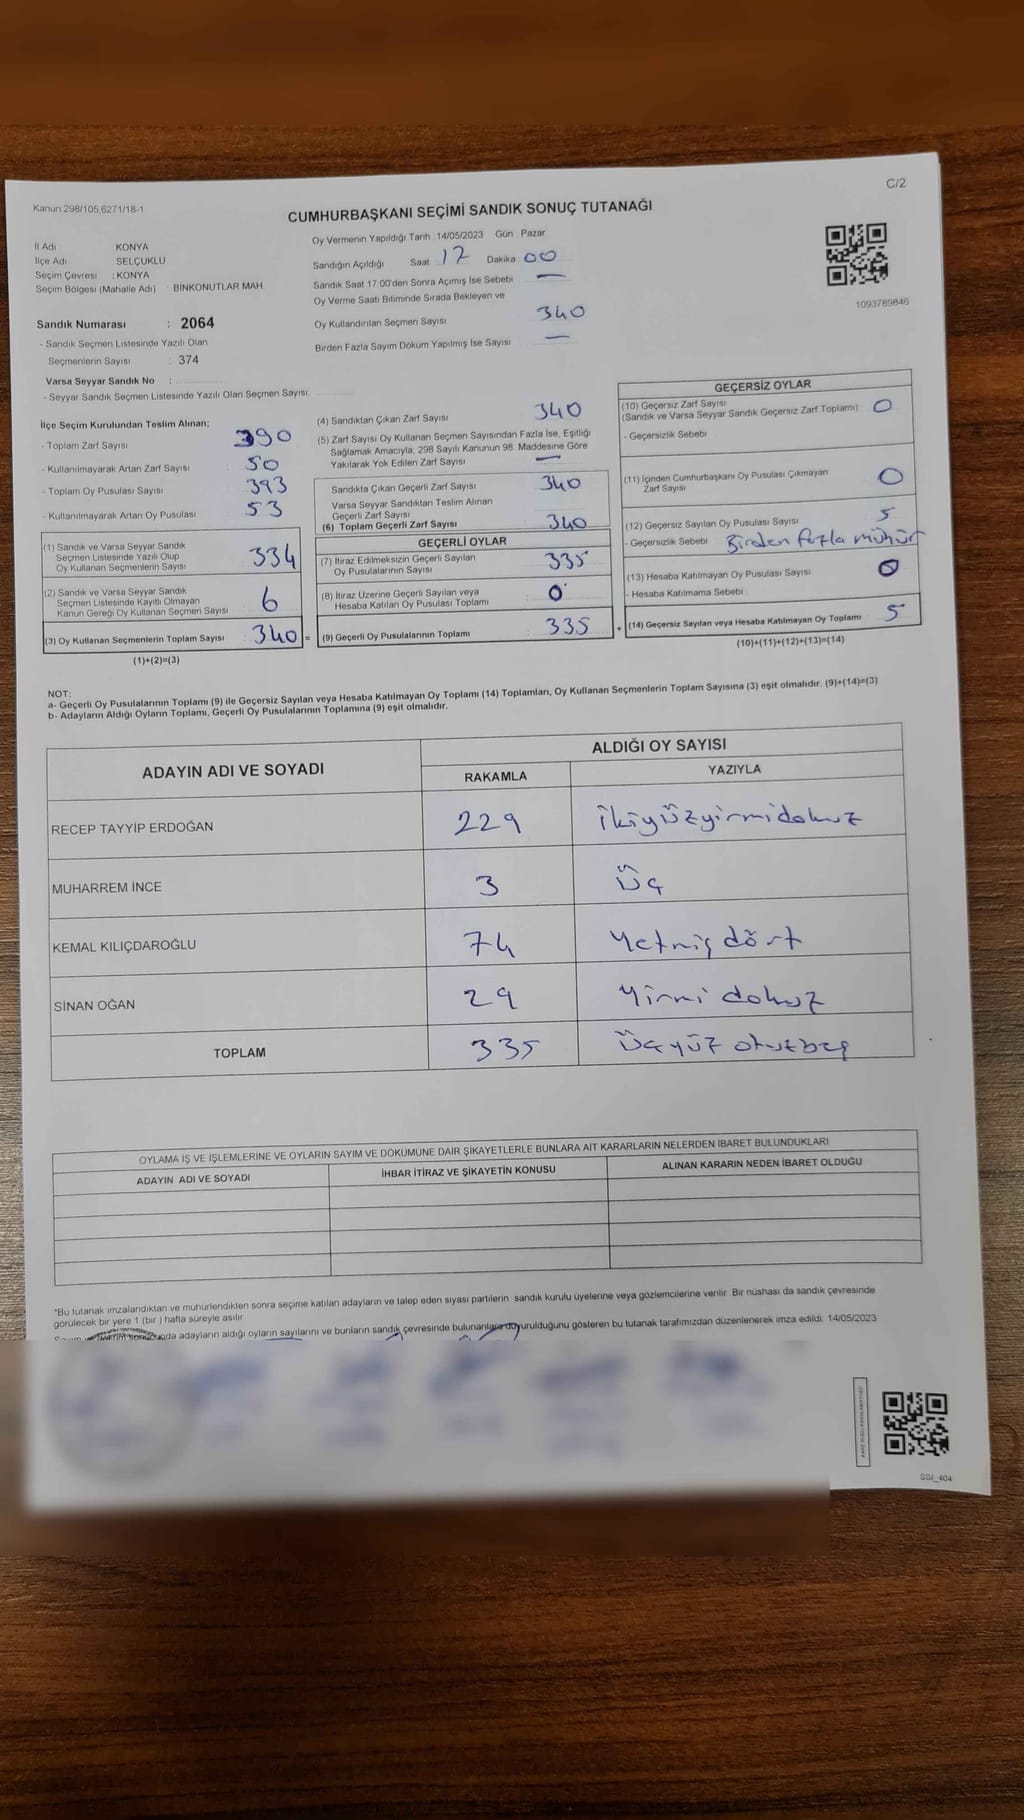 C/2
Kanun 298/105,6271/18-1
CUMHURBAŞKANI SEÇİMİ SANDIK SONUÇ TUTANAĞI
İl Adı KONYA
İlçe Adı SELÇUKLU
Seçim Çevresi : KONYA
Seçim Bölgesi (Mahalle Adı) BİNKONUTLAR MAH.
Oy Vermenin Yapıldığı Tarih 14/05/2023 Gün Pazar
Sandığın Açıldığı Saat 17 Dakika 00
Sandık Saat 17 00'den Sonra Açımış İse Sebebi —
Oy Verme Saati Bitiminde Sırada Bekleyen ve
Oy Kullandırılan Seçmen Sayısı 340
Birden Fazla Sayım Döküm Yapılmış İse Sayısı —
1093789846
Sandık Numarası : 2064
- Sandık Seçmen Listesinde Yazılı Olan
Seçmenlerin Sayısı : 374
Varsa Seyyar Sandık No :
- Seyyar Sandık Seçmen Listesinde Yazılı Olan Seçmen Sayısı
İlçe Seçim Kurulundan Teslim Alınan;
- Toplam Zarf Sayısı 390
- Kullanılmayarak Artan Zarf Sayısı 50
- Toplam Oy Pusulası Sayısı 393
- Kullanılmayarak Artan Oy Pusulası 53
(1) Sandık ve Varsa Seyyar Sandık
Seçmen Listesinde Yazılı Olup
Oy Kullanan Seçmenlerin Sayısı 334
(2) Sandık ve Varsa Seyyar Sandık
Seçmen Listesinde Kayıtlı Olmayan
Kanun Gereği Oy Kullanan Seçmen Sayısı 6
(3) Oy Kullanan Seçmenlerin Toplam Sayısı 340 =
(1)+(2)=(3)
(4) Sandıktan Çıkan Zarf Sayısı 340
(5) Zarf Sayısı Oy Kullanan Seçmen Sayısından Fazla İse, Eşitliği
Sağlamak Amacıyla, 298 Sayılı Kanunun 98. Maddesine Göre
Yakılarak Yok Edilen Zarf Sayısı —
Sandıkta Çıkan Geçerli Zarf Sayısı 340
Varsa Seyyar Sandıktan Teslim Alınan
Geçerli Zarf Sayısı
(6) Toplam Geçerli Zarf Sayısı 340
GEÇERLİ OYLAR
(7) İtiraz Edilmeksizin Geçerli Sayılan
Oy Pusulalarının Sayısı 335
(8) İtiraz Üzerine Geçerli Sayılan veya
Hesaba Katılan Oy Pusulası Toplamı 0
(9) Geçerli Oy Pusulalarının Toplamı 335 +
GEÇERSİZ OYLAR
(10) Geçersiz Zarf Sayısı
(Sandık ve Varsa Seyyar Sandık Geçersiz Zarf Toplamı) 0
- Geçersizlik Sebebi
(11) İçinden Cumhurbaşkanı Oy Pusulası Çıkmayan
Zarf Sayısı 0
(12) Geçersiz Sayılan Oy Pusulası Sayısı 5
- Geçersizlik Sebebi Birden fazla mühür
(13) Hesaba Katılmayan Oy Pusulası Sayısı 0
- Hesaba Katılmama Sebebi
(14) Geçersiz Sayılan veya Hesaba Katılmayan Oy Toplamı 5
(10)+(11)+(12)+(13)=(14)
NOT:
a- Geçerli Oy Pusulalarının Toplamı (9) ile Geçersiz Sayılan veya Hesaba Katılmayan Oy Toplamı (14) Toplamları, Oy Kullanan Seçmenlerin Toplam Sayısına (3) eşit olmalıdır. (9)+(14)=(3)
b- Adayların Aldığı Oyların Toplamı, Geçerli Oy Pusulalarının Toplamına (9) eşit olmalıdır.
ADAYIN ADI VE SOYADI ALDIĞI OY SAYISI
RAKAMLA YAZIYLA
RECEP TAYYİP ERDOĞAN 229 ikiyüzyirmidokuz
MUHARREM İNCE 3 üç
KEMAL KILIÇDAROĞLU 74 Yetmiş dört
SİNAN OĞAN 29 Yirmi dokuz
TOPLAM 335 Üçyüz otuzbeş
OYLAMA İŞ VE İŞLEMLERİNE VE OYLARIN SAYIM VE DÖKÜMÜNE DAİR ŞİKAYETLERLE BUNLARA AİT KARARLARIN NELERDEN İBARET BULUNDUKLARI
ADAYIN ADI VE SOYADI İHBAR İTİRAZ VE ŞİKAYETİN KONUSU ALINAN KARARIN NEDEN İBARET OLDUĞU
*Bu tutanak imzalandıktan ve mühürlendikten sonra seçime katılan adayların ve talep eden siyasi partilerin sandık kurulu üyelerine veya gözlemcilerine verilir. Bir nüshası da sandık çevresinde
görülecek bir yere 1 (bir ) hafta süreyle asılır
adayların aldığı oyların sayılarını ve bunların sandık çevresinde bulunanlara duyurulduğunu gösteren bu tutanak tarafımızdan düzenlenerek imza edildi. 14/05/2023
SSI_404